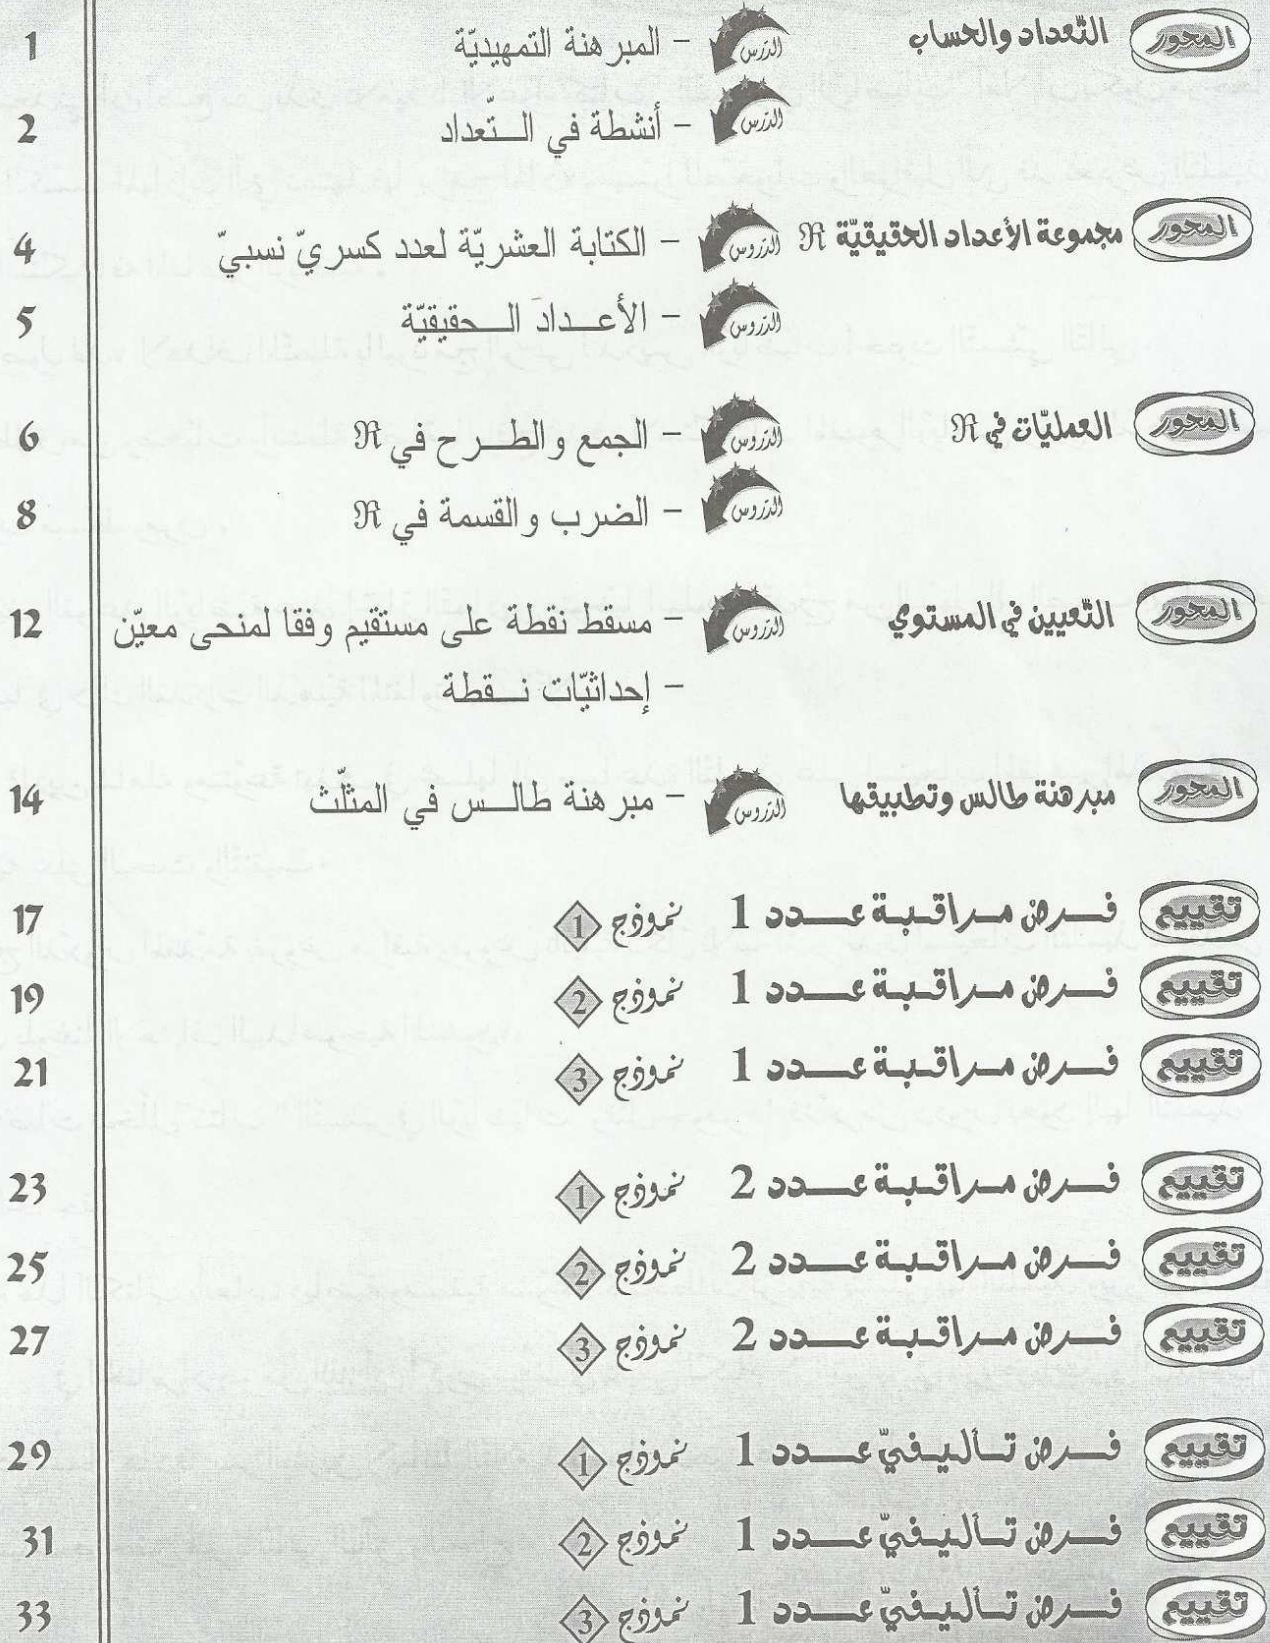 المحور التّعداد والحساب الدّرس - المبرهنة التمهيديّة 1
الدّرس - أنشطة في الـتّعداد 2
المحور مجموعة الأعداد الحقيقيّة ℜ الدّروس - الكتابة العشريّة لعدد كسريّ نسبيّ 4
الدّروس - الأعـدادَ الـحقيقيّة 5
المحور العمليّات في ℜ الدّروس - الجمع والطـرح في ℜ 6
الدّروس - الضرب والقسمة في ℜ 8
المحور التّعيين في المستوي الدّروس - مسقط نقطة على مستقيم وفقا لمنحى معيّن 12
- إحداثيّات نـقطة
المحور مبرهنة طالس وتطبيقها الدّروس - مبرهنة طالـس في المثلّث 14
تقييم فـرض مـراقـبـة عـدد 1 نموذج 1 17
تقييم فـرض مـراقـبـة عـدد 1 نموذج 2 19
تقييم فـرض مـراقـبـة عـدد 1 نموذج 3 21
تقييم فـرض مـراقـبـة عـدد 2 نموذج 1 23
تقييم فـرض مـراقـبـة عـدد 2 نموذج 2 25
تقييم فـرض مـراقـبـة عـدد 2 نموذج 3 27
تقييم فـرض تـألـيـفـيّ عـدد 1 نموذج 1 29
تقييم فـرض تـألـيـفـيّ عـدد 1 نموذج 2 31
تقييم فـرض تـألـيـفـيّ عـدد 1 نموذج 3 33